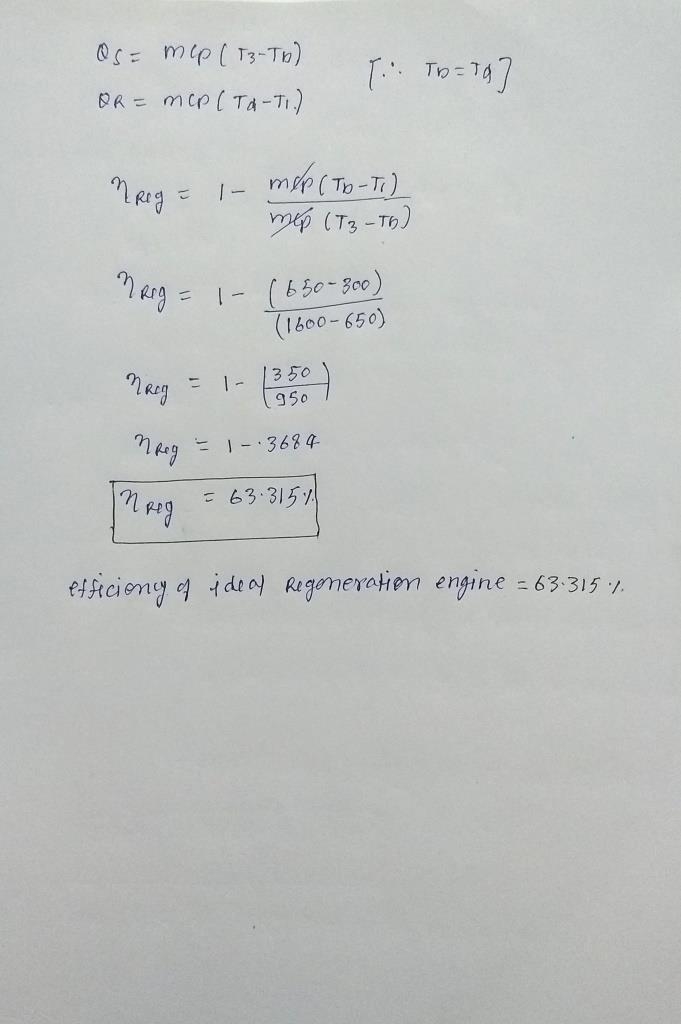 QS = mcp ( T3-Tb)
[∵ Tb = Ta]
QR = mcp ( Ta-T1.)
η Reg = 1 - mcp (Tb-T1) / mcp (T3-Tb)
η Reg = 1 - (650-300) / (1600-650)
η Reg = 1 - (350 / 950)
η Reg = 1 - .3684
η Reg = 63.315%
efficiency of ideal Regeneration engine = 63.315 %.